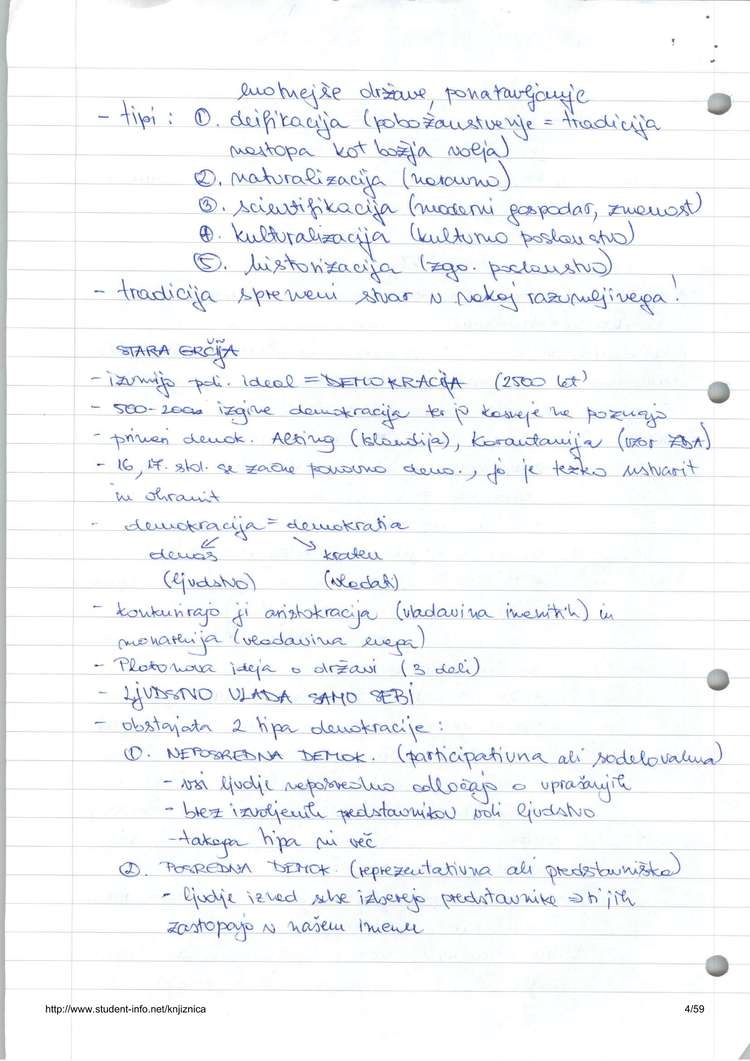 enotnejše države, ponatavljanje
- tipi : ①. deifikacija (pobožanstvenje = tradicija
nastopa kot božja volja)
②. naturalizacija (naravno)
③. scientifikacija (moderni gospodar, znanost)
④. kulturalizacija (kulturno poslanstvo)
⑤. historizacija (zgo. poslanstvo)
- tradicija spremeni stvar v nekaj razumljivega!
STARA GRČIJA
- izumijo poli. ideal = DEMOKRACIJA (2500 let)
- 500-2000 izgine demokracija ter jo kasneje ne poznajo
- primeri demok. Alting (Islandija), Korantanija (vzor ZDA)
- 16, 17. stol. se začne ponovno demo., jo je težko ustvarit
in ohranit
- demokracija = demokratia
demos kraten
(ljudstvo) (vladati)
- konkurirajo ji aristokracija (vladavina imenith) in
monarhija (vladavina enega)
- Platonova ideja o državi (3 deli)
- LJUDSTVO VLADA SAMO SEBI
- obstajata 2 tipa demokracije :
①. NEPOSREDNA DEMOK. (participativna ali sodelovalna)
- vsi ljudje neposredno odločajo o uprašanjih
- brez izvoljenih predstavnikov voli ljudstvo
- takega tipa ni več
②. POSREDNA DEMOK. (reprezentativna ali predstavniška)
- ljudje izved sebe izberejo predstavnike ⇒ ti jih
zastopajo v našem imenu
http://www.student-info.net/knjiznica 4/59